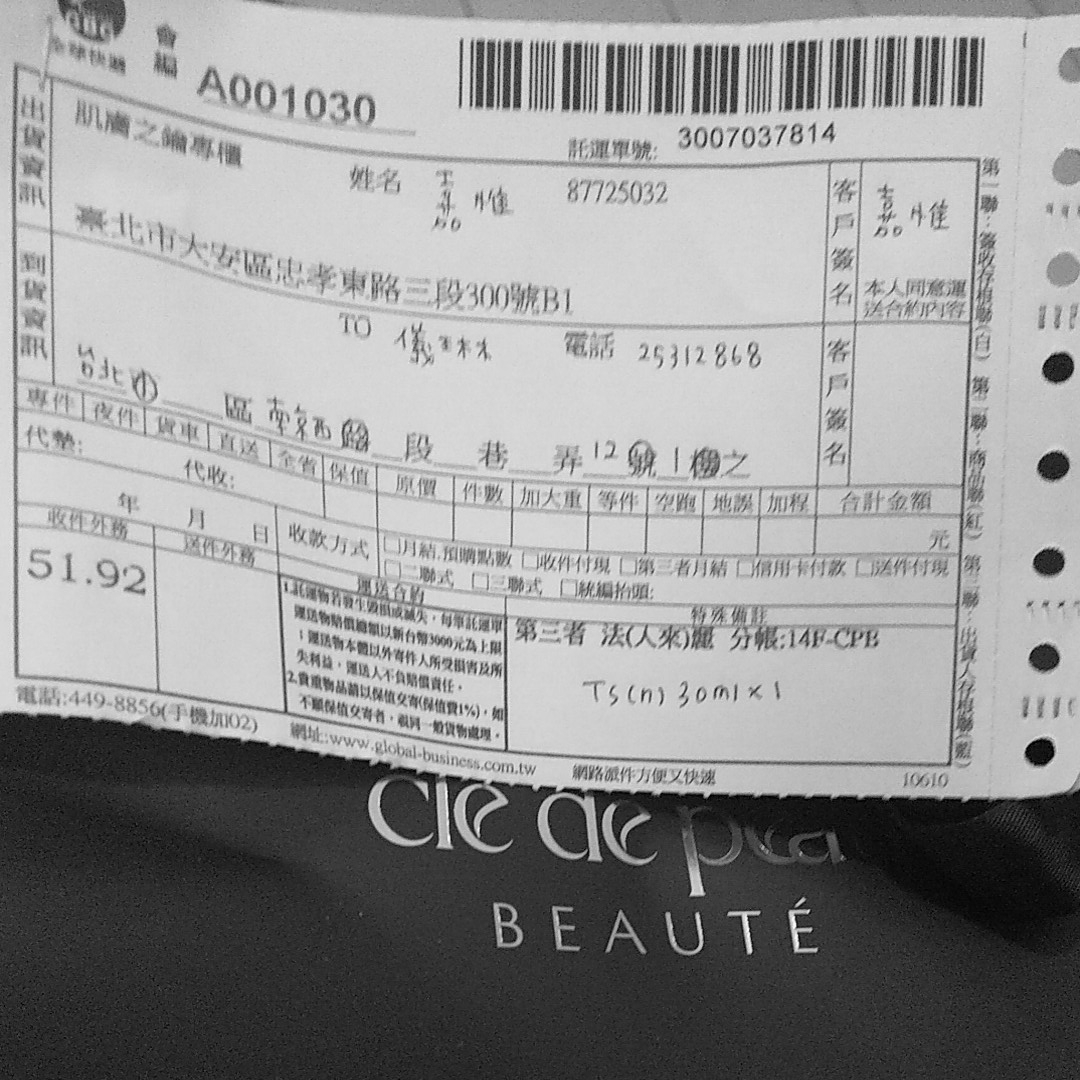 全球快遞
會編 A001030
託運單號: 3007037814
出貨資訊
肌膚之鑰專櫃
姓名 嘉雅 87725032
臺北市大安區忠孝東路三段300號B1
客戶簽名
嘉雅
本人同意運送合約內容
到貨資訊
TO 儀琳 電話 25312868
台北市 區 南京西路 段 巷 弄 12號 1樓之
客戶簽名
專件 夜件 貨車 直送 全省 保值 原價 件數 加大重 等件 空跑 地誤 加程 合計金額
代墊: 代收: 元
年 月 日 收款方式 □月結.預購點數 □收件付現 □第三者月結 □信用卡付款 □送件付現
□二聯式 □三聯式 □統編抬頭:
收件外務 送件外務
51.92
運送合約
1.託運物若發生毀損或滅失,每筆託運單
運送物賠償總額以新台幣3000元為上限
;運送物本體以外寄件人所受損害及所
失利益,運送人不負賠償責任。
2.貴重物品請以保值交寄(保值費1%),如
不願保值交寄者,視同一般貨物處理。
特殊備註
第三者 法(人來)麗 分帳:14F-CPB
TS(n) 30ml×1
電話:449-8856(手機加02) 網址:www.global-business.com.tw 網路派件方便又快速 10610
第一聯:簽收存根聯(白) 第二聯:商佔聯(紅) 第三聯:出貨人存根聯(藍)
clé de pea
BEAUTÉ